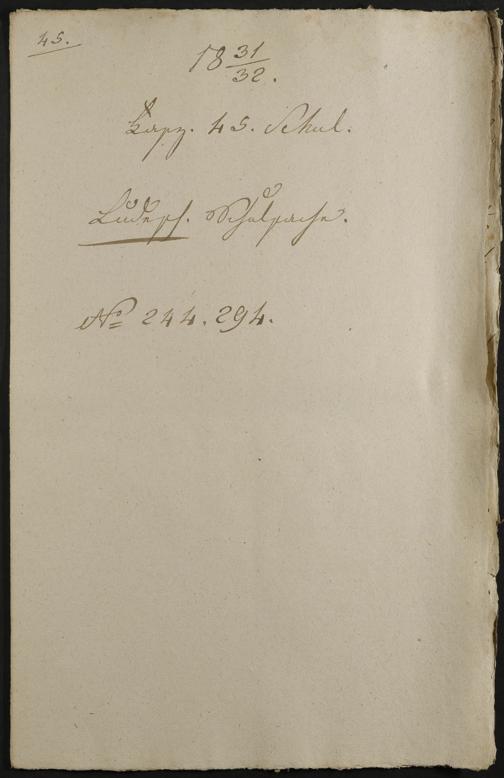 45.
18 31/32.
Kapz. 45. Schul.
Judepf. Schulsache.
No 244. 294.